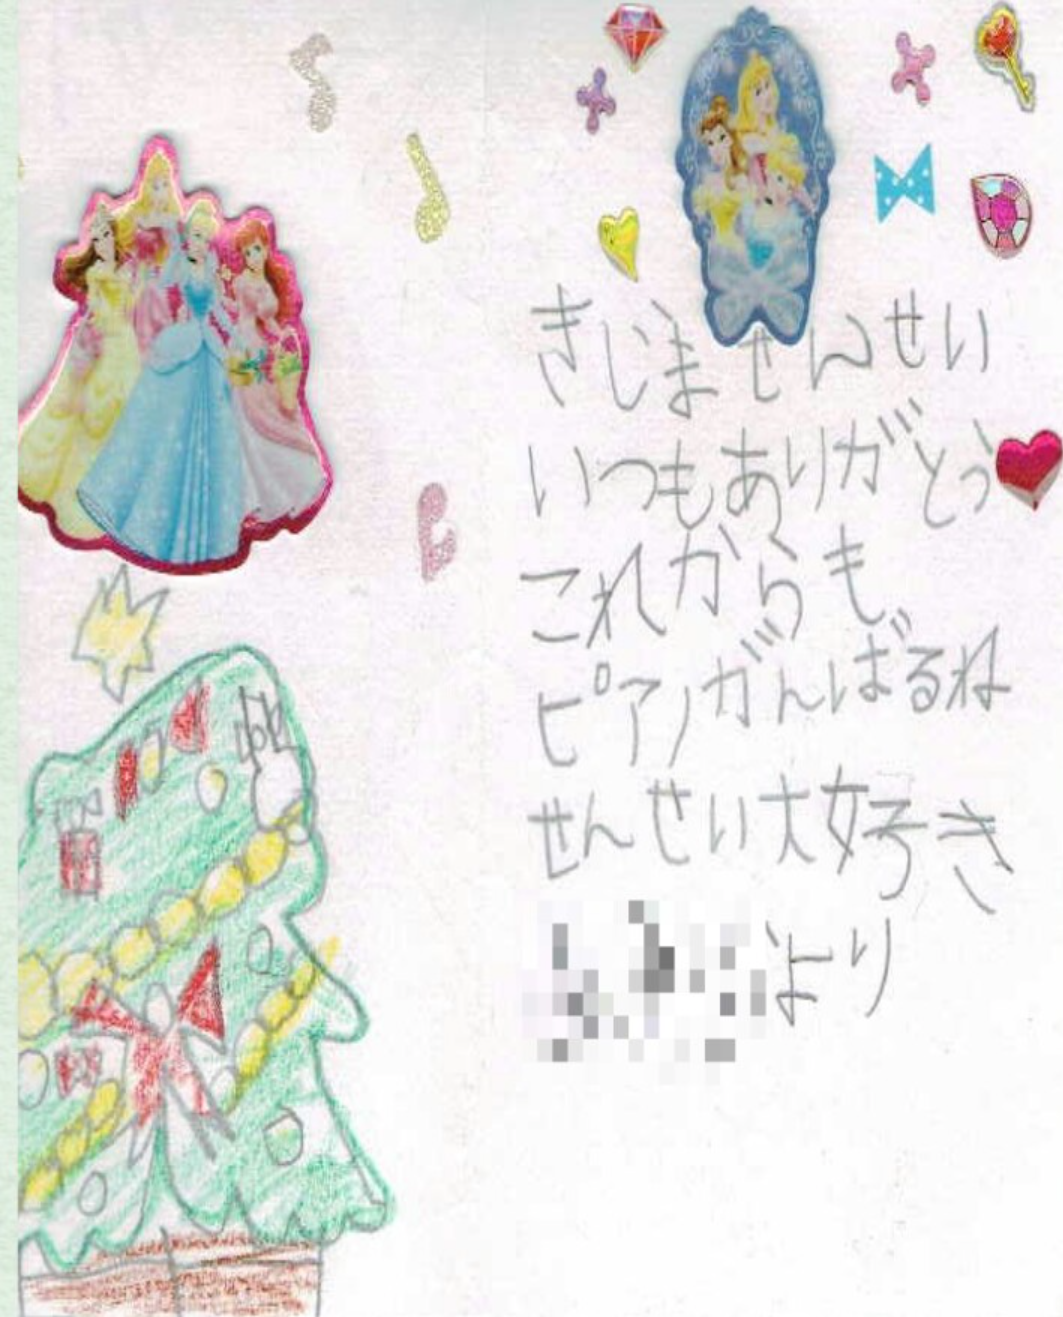 きじませんせい
いつもありがとう
これからも
ピアノがんばるね
せんせい大好き
より